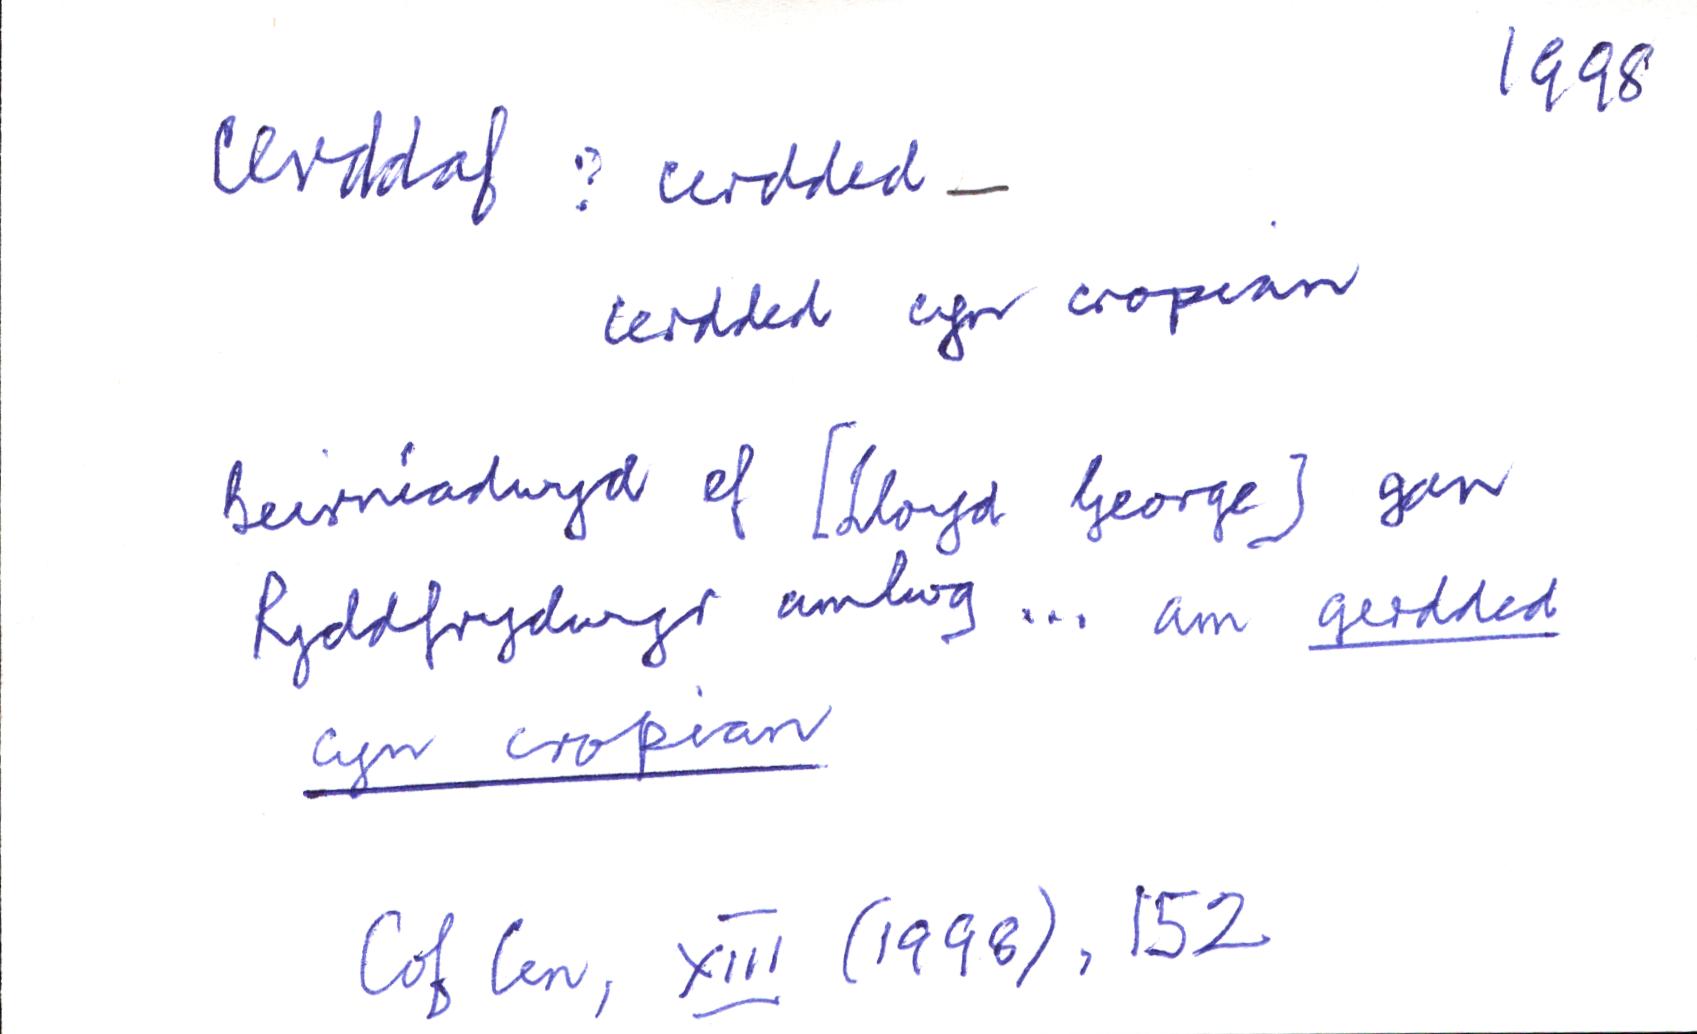 1998
Cerddaf : cerdded —
cerdded cyn cropian
Beirniadwyd ef [Lloyd George] gan
Ryddfrydwyr amlwg ... am gerdded
cyn cropian
Cof Cen, XIII (1998), 152